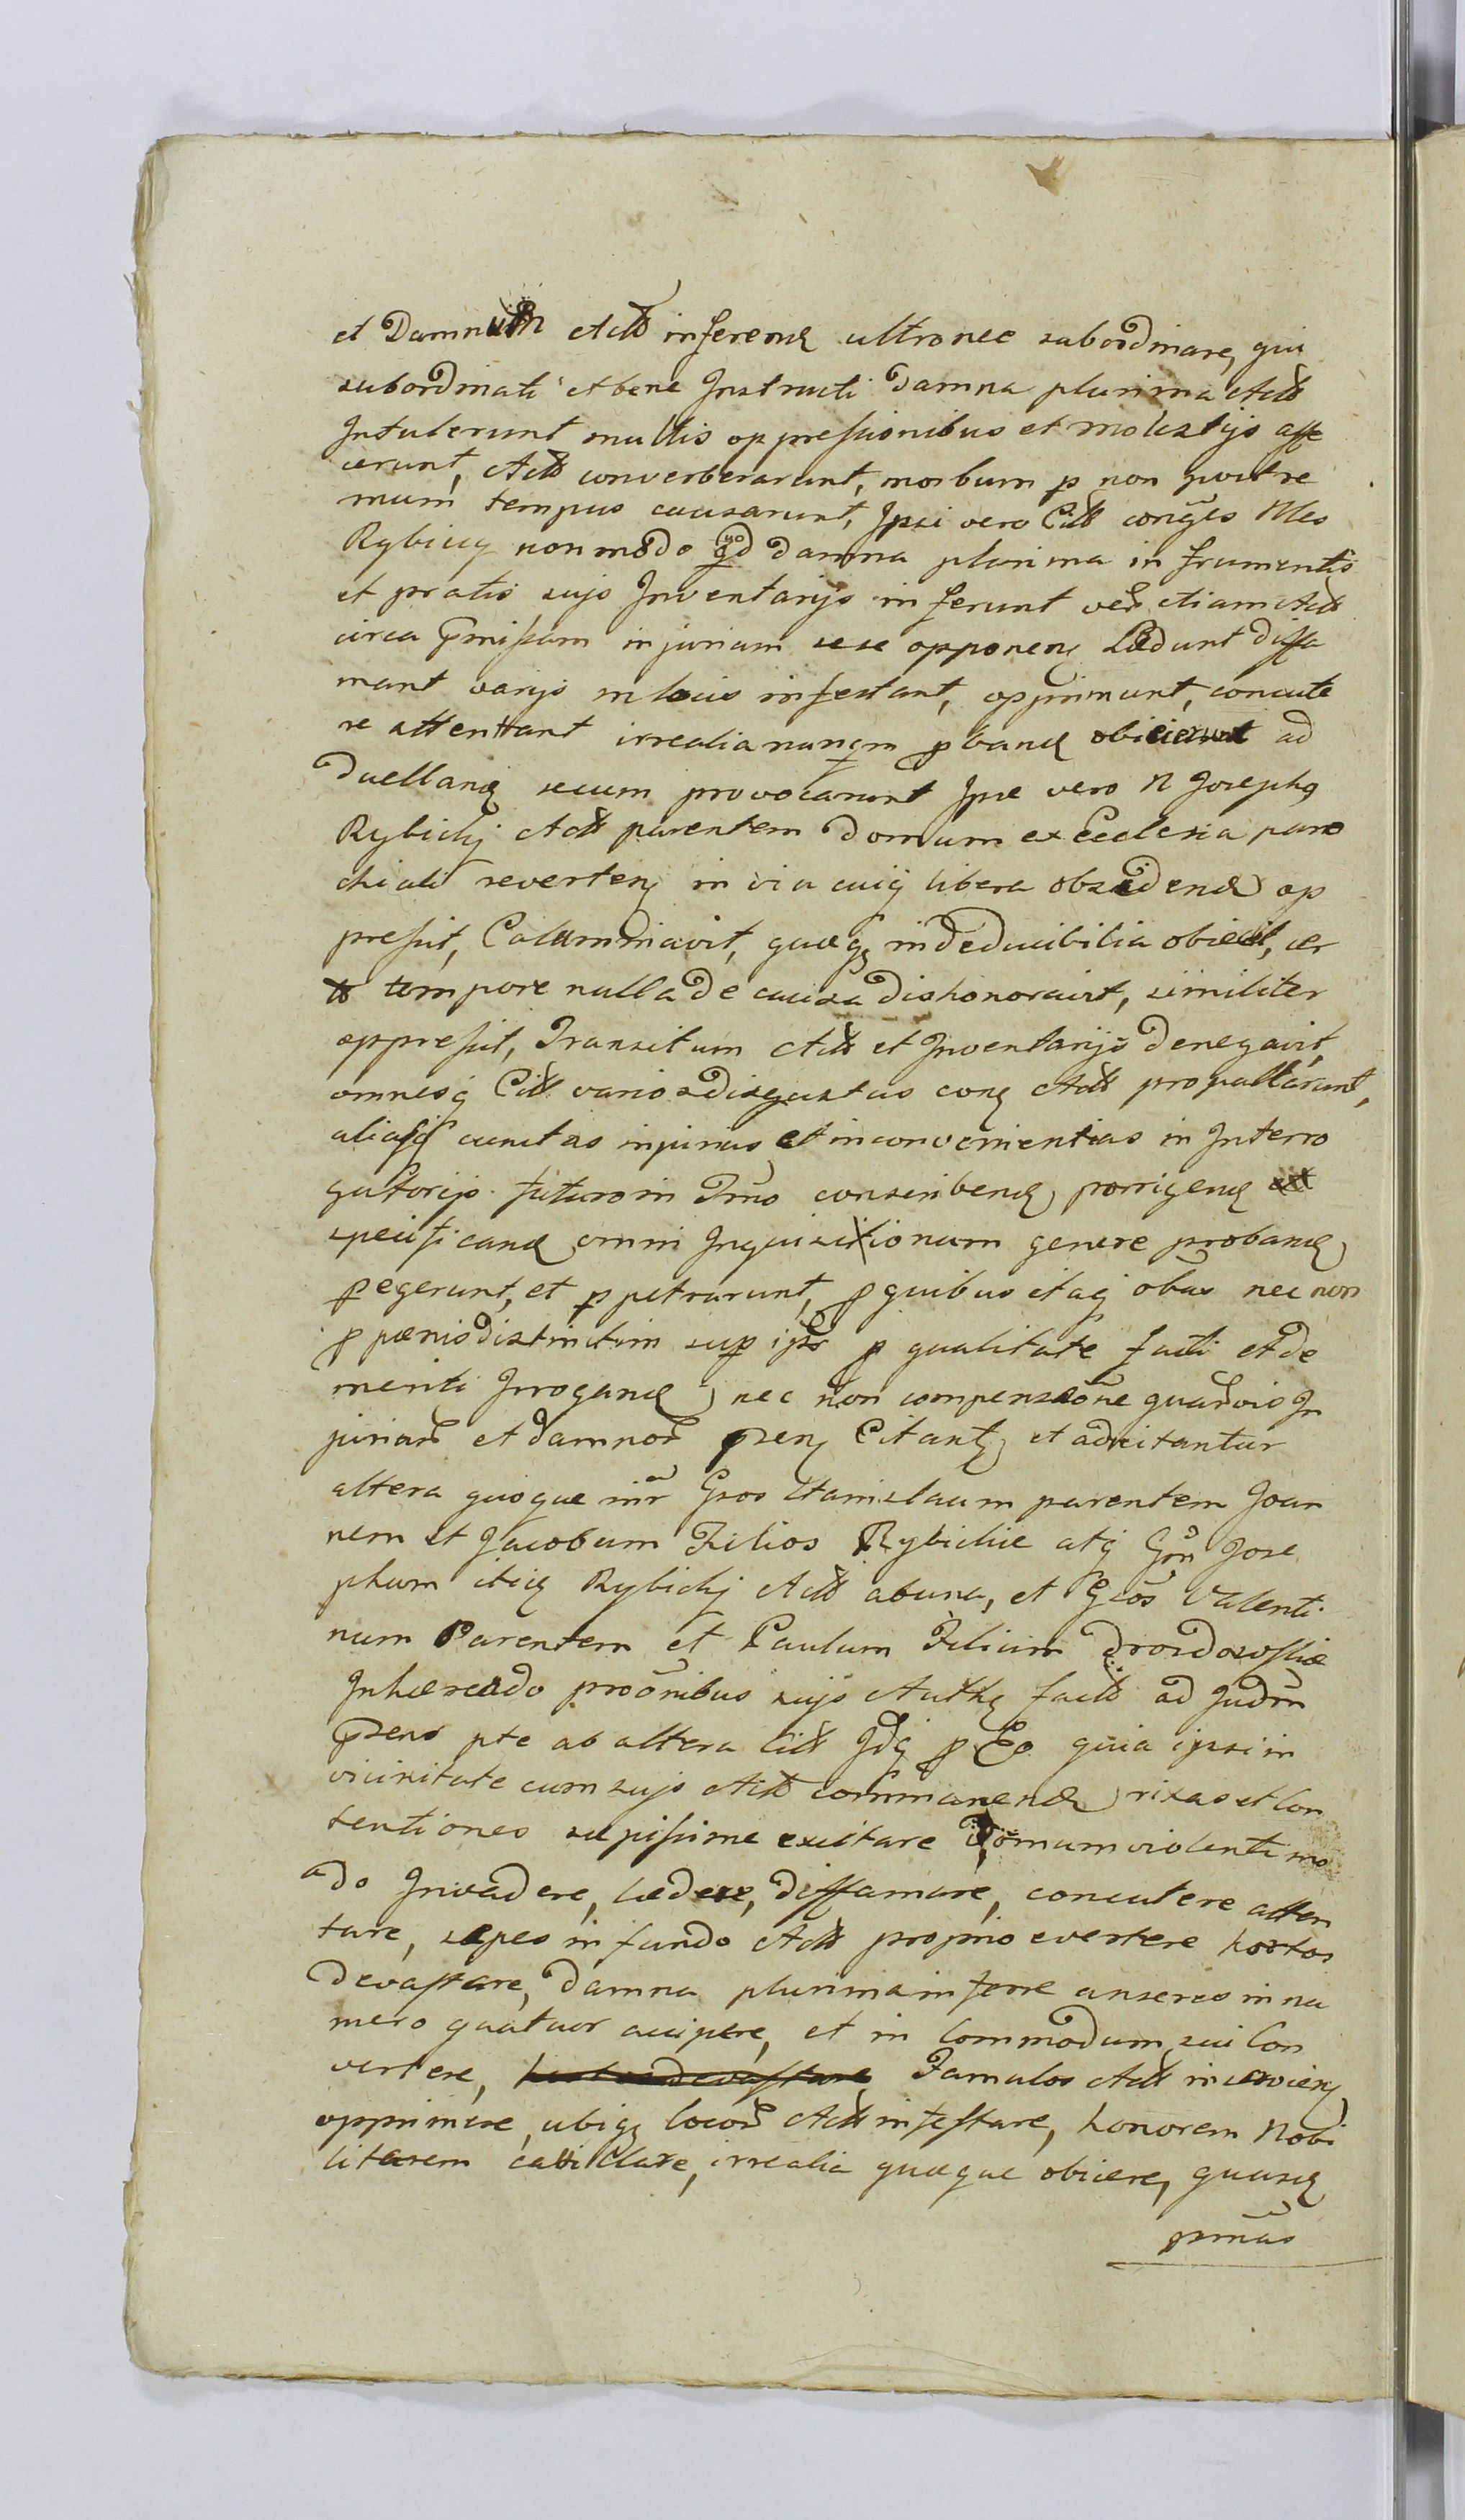 et Damnum Actt inferend ultronee subordinare, qui
subordinati et bene Instructi damna plurima Actt
Intulerunt multis oppressionibus et molestijs affe
cerunt, Actt converberarunt, morbum p non postre
mum tempus causarunt, Ipsi vero Citt conges Nles
Rybiccy non modo quod damna plurima in frumentis
et pratis sujs Inventarijs inferunt vero etiam Actt
circa pmissam injuriam sese opponen Lædunt diffa
mant varijs in locis infestant, opprimunt, concute
re attentant irrealia nunqm pband obiicierunt ad
duelland secum provocarunt Ipse vero N Josephg
Rybickj Actt parentem domum ex Ecclesia paro
chiali reverten in via cuiq libera obsidend op
pressit, Calumniavit, quæq indeducibilia obiecit, cer
to tempore nulla de causa dishonoravit, similiter
oppressit, Transitum Actt et Inventarijs denegavit,
omnesq Citt varios disgustus cong Actt propallarunt,
aliasq cunctas injurias et inconvenientias in Interro
gatorijs futuro in Trno conscribend, porrigend et
specificand omni Inquisitionum genere proband
pegerunt, et ppetrarunt, p quibus itaq obus nec non
p pænis distinctim sup ipss p qualitate facti et de
meriti Irrogand, nec non compensaone quarvis In
juriar et damnor psen Citant et adcitantur
altera quoque inr Gsos Stanislaum parentem Joan
nem et Jacobum Filios Rybickie atq Gsm Jose
phum itid Rybickj Actt ab una, et Gsos Valenti
num Parentem et Paulum Filium Drozdowskie
Inhærendo proonibus sujs Authe factt ad Judm
psens pte ab altera Citt Idq p Eo quia ipsi in
vicinitate cum sujs Actt commanend rixas et Con
tentiones sæpissime excitare Domum violenti mo
do Invadere, lædere, diffamare, concutere atten
tare, sepes in fundo Actt proprio evertere hortos
devastare, damna plurima inferre anseres in nu
mero quatuor accipere, et in Commodum sui Con
vertere, Famulos Actt inservien
opprimere, ubiq locor Actt infestare, honorem Nobi
litarem cavillare, irrealia quæque obiicere, quasd
pmas